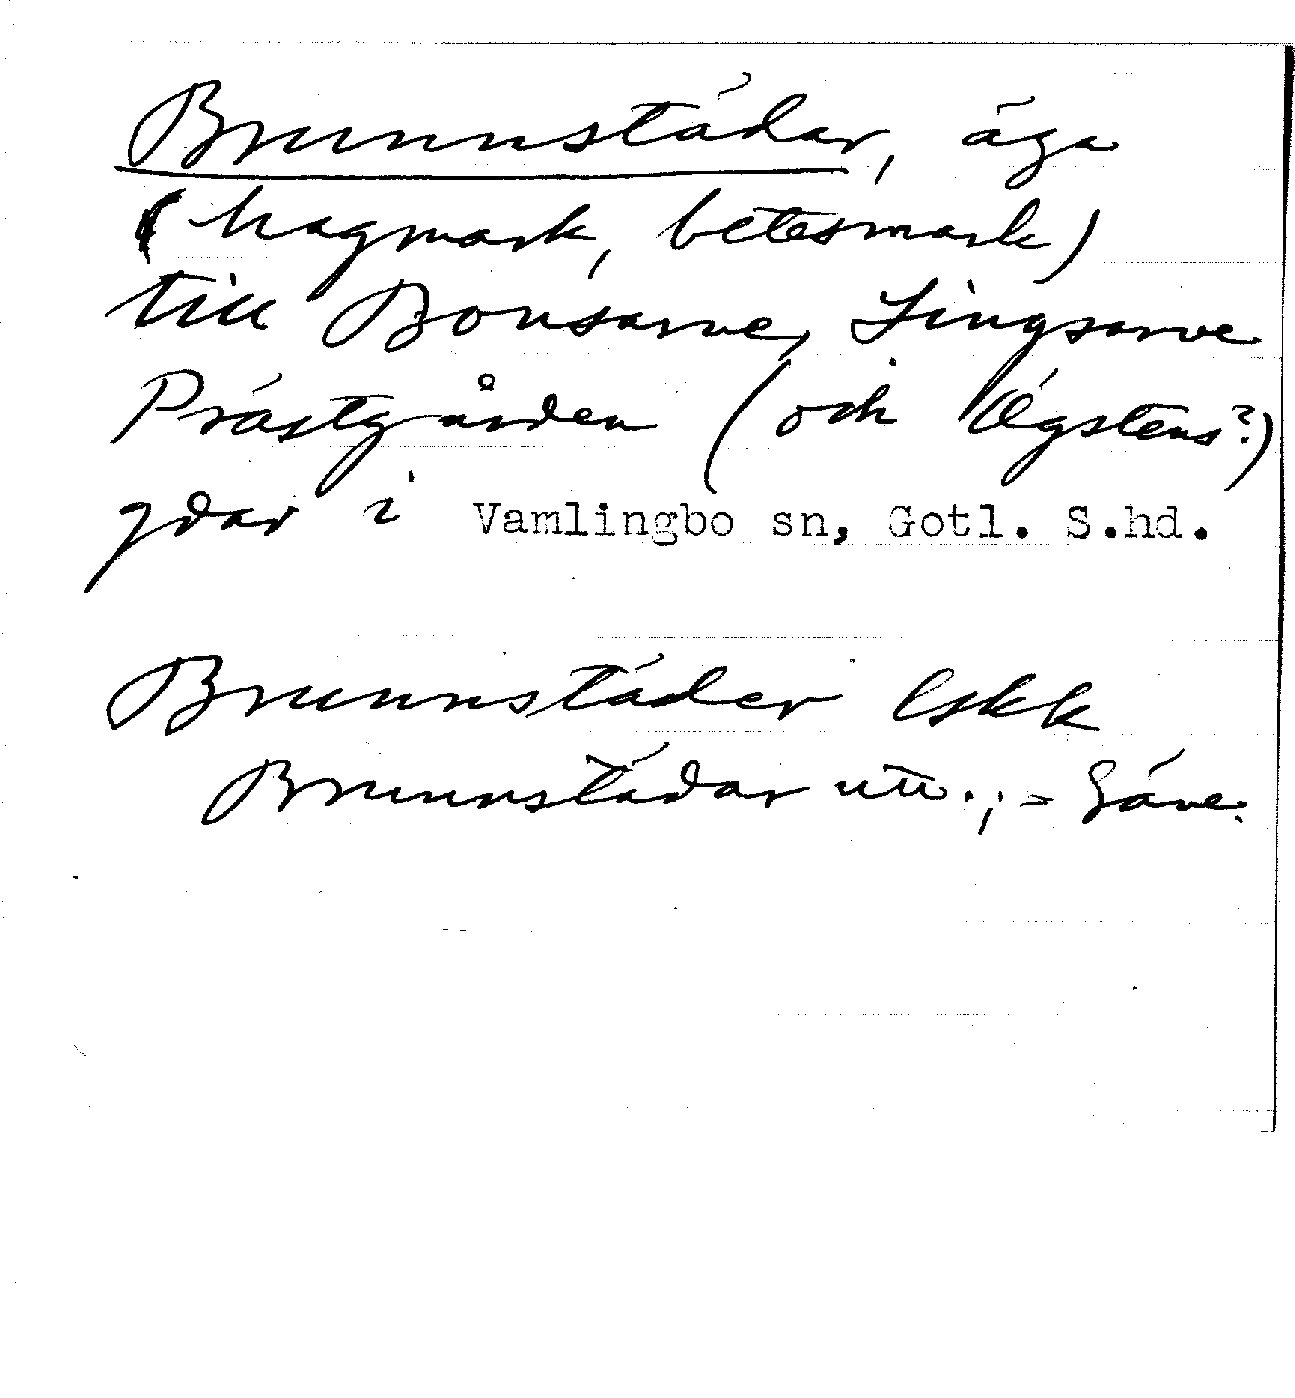 Brunnstädar, äga
(hagmark, betesmark)
till Bonsarve, Lingsarve
Prästgården (och Ögstens?)
gdar i Vamlingbo sn, Gotl. S.hd.
Brunnstäder Eskk
Brunnstädar utt., = Säve.